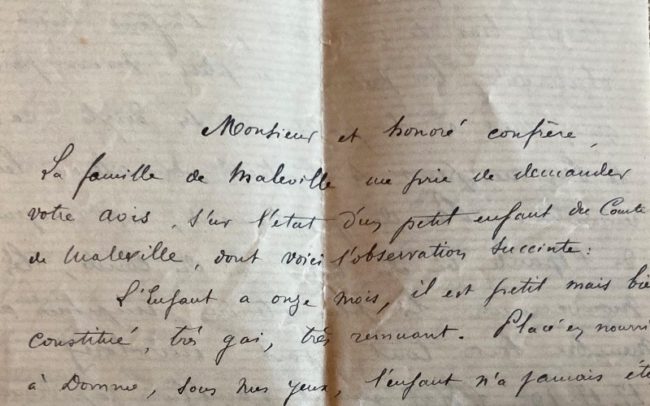 Monsieur et honoré confrère,
La famille de Maleville me prie de demander
votre avis, sur l'état d'un petit enfant du Comte
de Maleville, dont voici l'observation succinte :
L'Enfant a onze mois, il est petit mais bie
constitué, très gai, très remuant. Placé en nourri
à Domme, sous mes yeux, l'enfant n'a jamais été